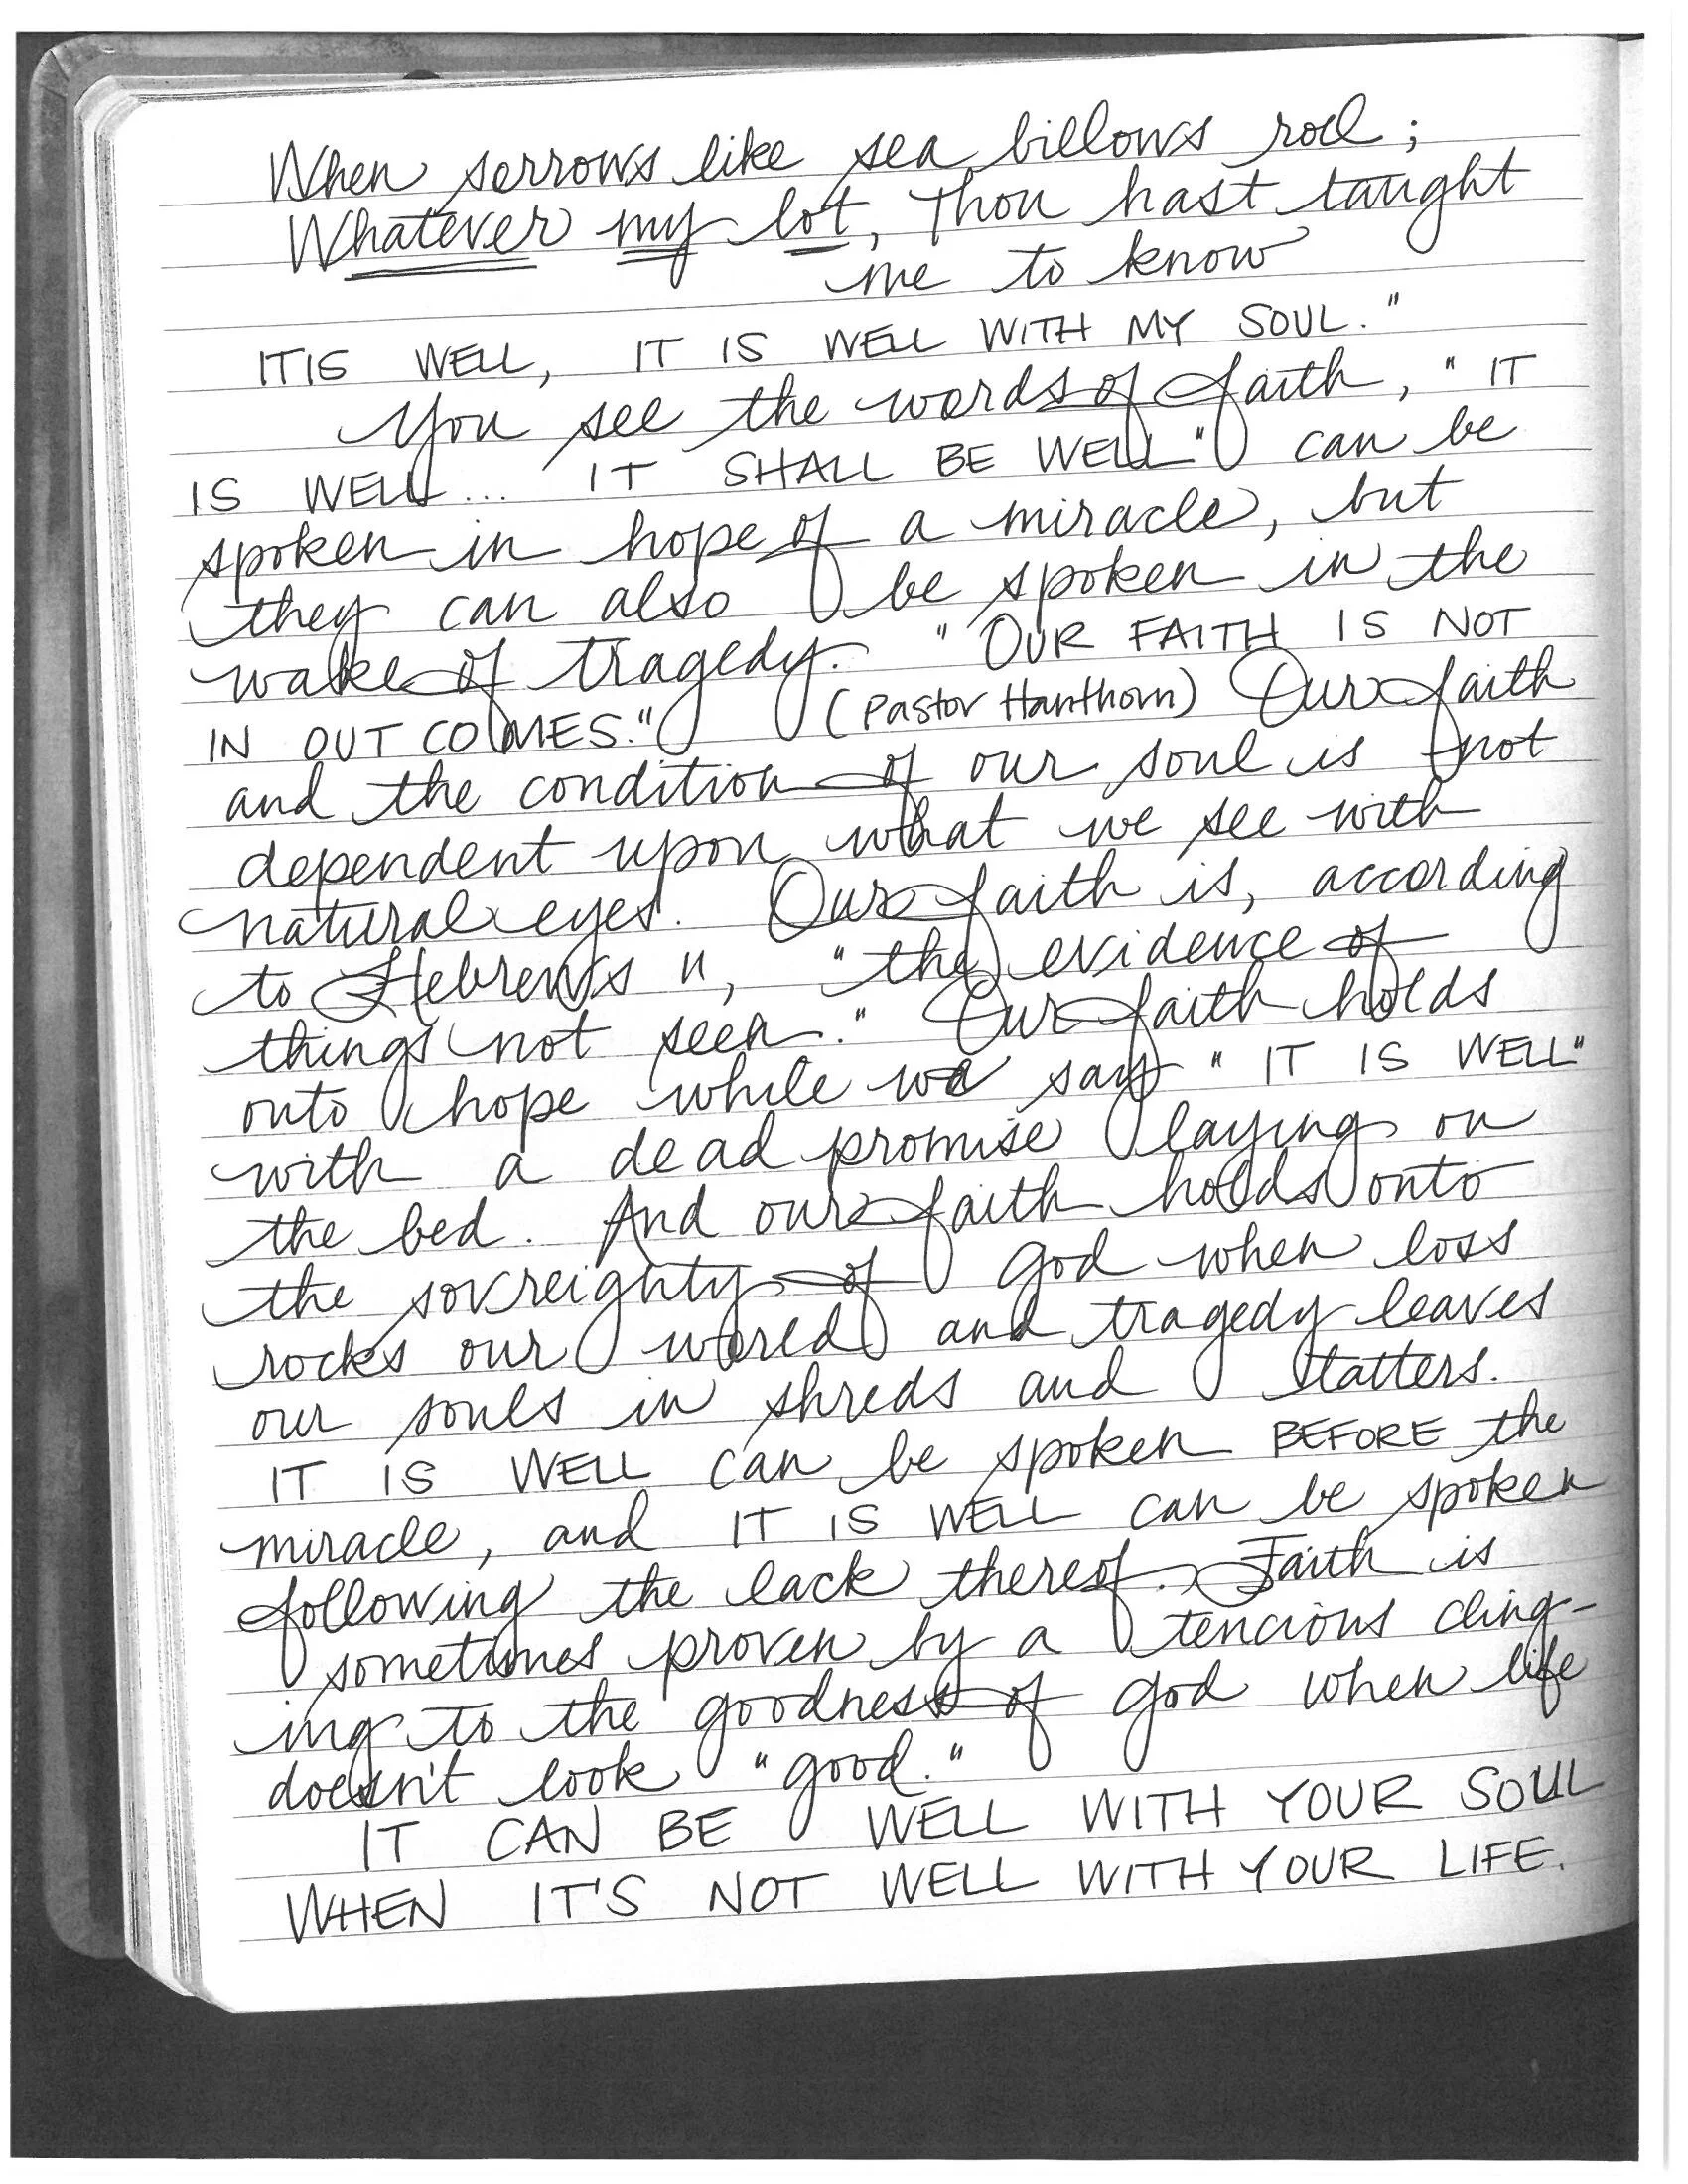 When sorrows like sea billows roll;
Whatever my lot, Thou hast taught
me to know
IT IS WELL, IT IS WELL WITH MY SOUL."
You see the words of faith, "IT
IS WELL... IT SHALL BE WELL" can be
spoken in hope of a miracle, but
they can also be spoken in the
wake of tragedy. "OUR FAITH IS NOT
IN OUTCOMES." (Pastor Hanthorn) Our faith
and the condition of our soul is not
dependent upon what we see with
natural eyes. Our faith is, according
to Hebrews 11, "the evidence of
things not seen." Our faith holds
onto hope while we say "IT IS WELL"
with a dead promise laying on
the bed. And our faith holds onto
the sovreignty of God when loss
rocks our world and tragedy leaves
our souls in shreds and tatters.
IT IS WELL can be spoken BEFORE the
miracle, and IT IS WELL can be spoken
following the lack thereof. Faith is
sometimes proven by a tencious cling-
ing to the goodness of God when life
doesn't look "good."
IT CAN BE WELL WITH YOUR SOUL
WHEN IT'S NOT WELL WITH YOUR LIFE.